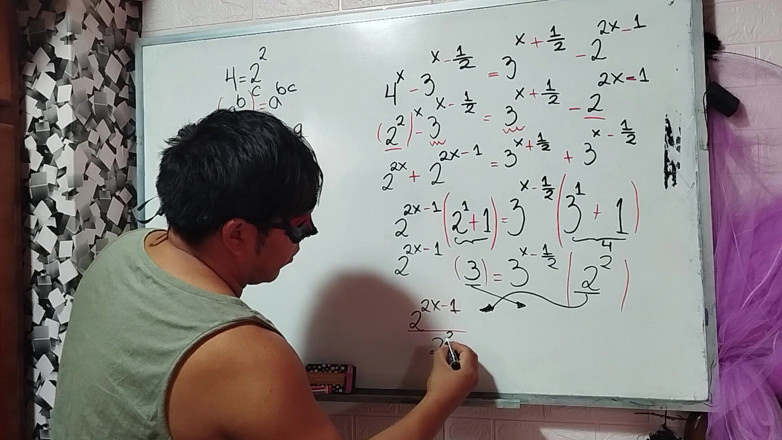 4 = 2²
(a^b)^c = a^{bc}
4^x - 3^{x-1/2} = 3^{x+1/2} - 2^{2x-1}
(2²)^x - 3^{x-1/2} = 3^{x+1/2} - 2^{2x-1}
2^{2x} + 2^{2x-1} = 3^{x+1/2} + 3^{x-1/2}
2^{2x-1} (2¹ + 1) = 3^{x-1/2} (3¹ + 1)
4
2^{2x-1} (3) = 3^{x-1/2} (2²)
2^{2x-1}
2²